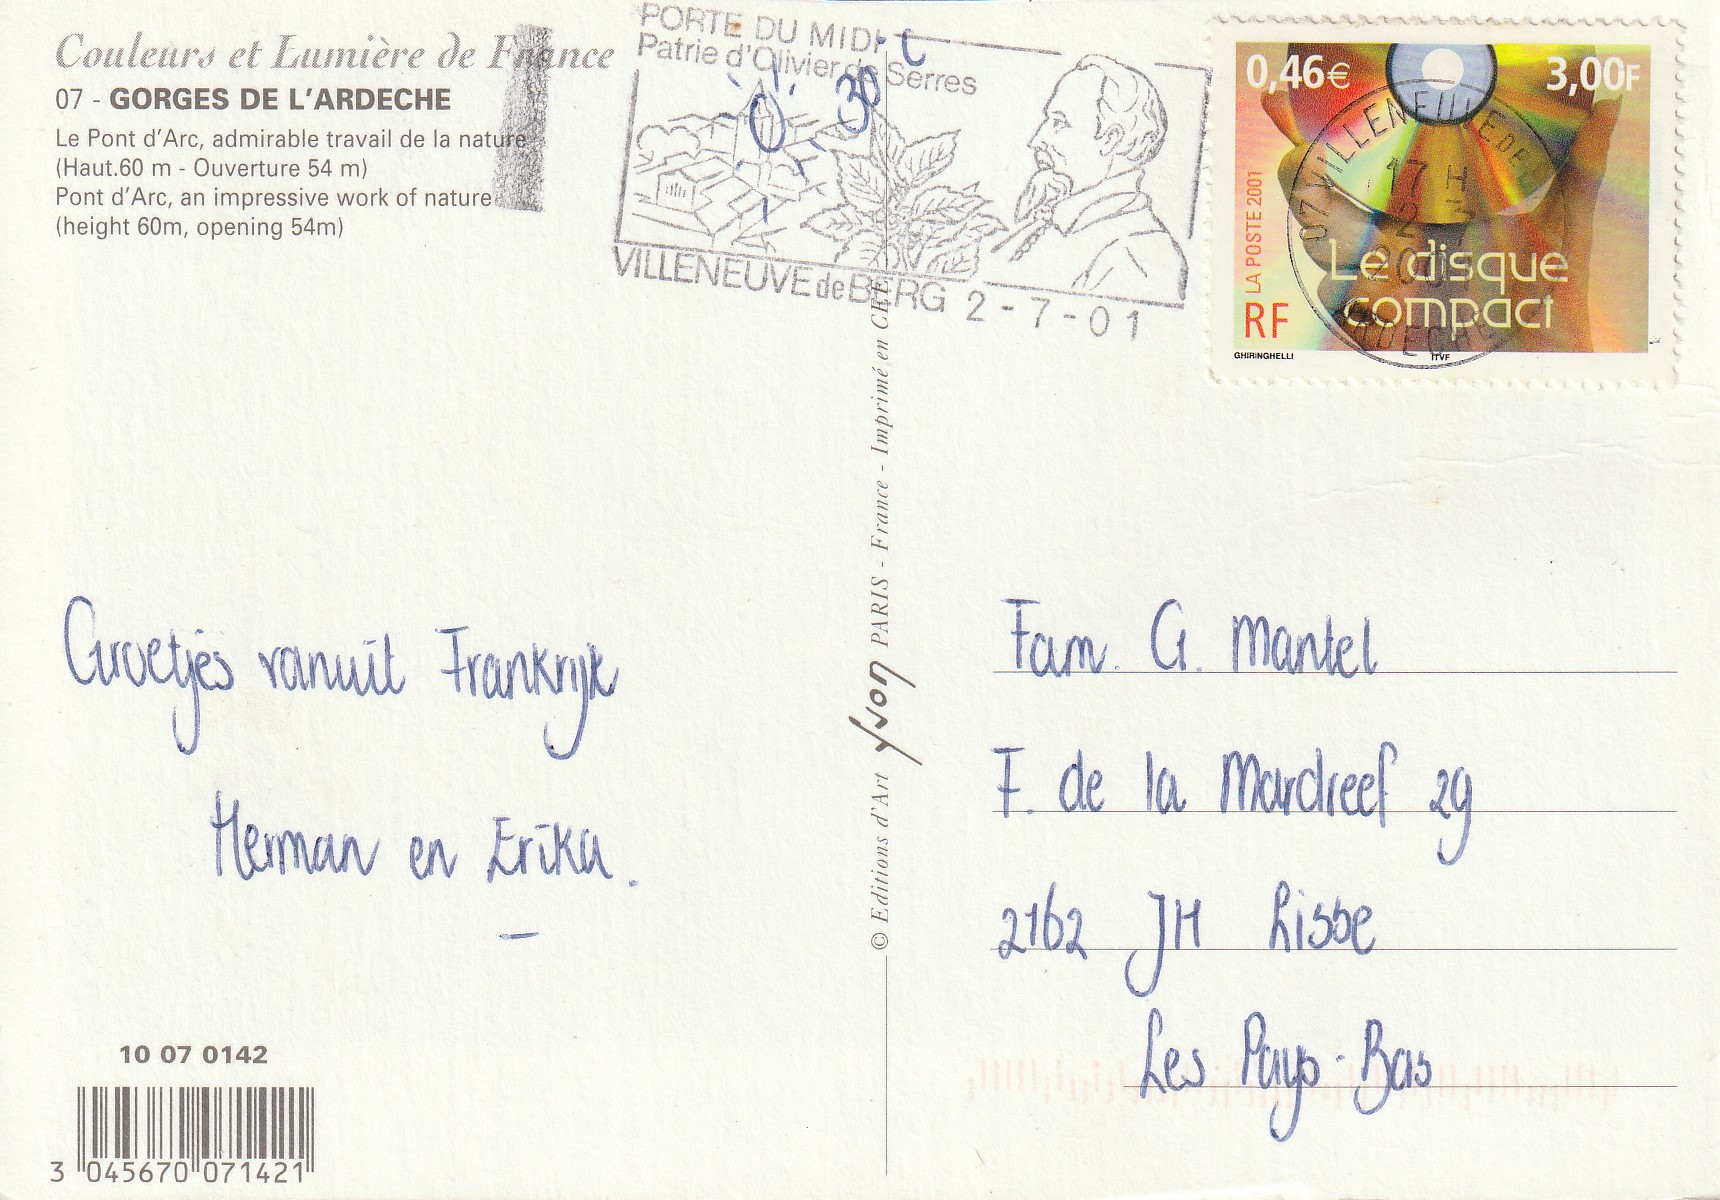 Couleurs et Lumière de France
07 - GORGES DE L'ARDECHE
Le Pont d'Arc, admirable travail de la nature
(Haut.60 m - Ouverture 54 m)
Pont d'Arc, an impressive work of nature
(height 60m, opening 54m)
PORTE DU MIDI
Patrie d'Olivier de Serres
30°C
VILLENEUVE de BERG 2-7-01
0,46€ 3,00F
LA POSTE 2001
Le disque
compact
RF
GHIRINGHELLI ITVF
07 VILLENEUVE DE BERG
17 H
2
ARDECHE
Groetjes vanuit Frankrijk
Herman en Erika.
© Editions d'Art Yvon PARIS - France - Imprimé en CEE
Fam. G. Mantel
F. de la Mardreef 29
2162 JH Lisse
Les Pays-Bas
10 07 0142
3 045670 071421